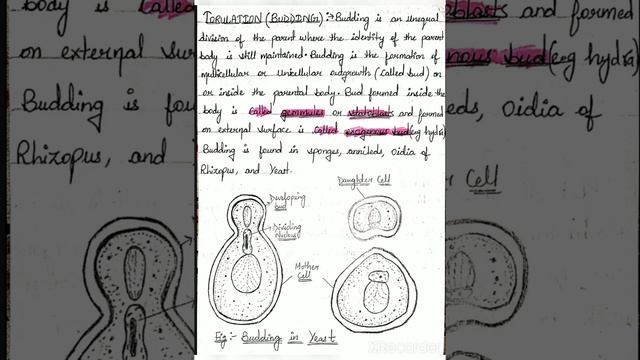 TORULATION (BUDDING) :- Budding is an unequal
division of the parent where the identity of the parent
body is still maintained. Budding is the formation of
multicellular or unicellular outgrowth (called bud) on
or inside the parental body. Bud formed inside the
body is called gemmules or statoblasts and formed
on external surface is called exogenous bud (eg hydra)
Budding is found in sponges, annileds, Oidia of
Rhizopus, and Yeast.
Daughter Cell
Developing
bud
Dividing
Nucleus
Mother
Cell
Fig :- Budding in Yeast
XRecorder
body is called
on external sur
Budding is fou
Rhizopus, and
blasts and formed
enous bud (eg hydra)
leds, Oidia of
Cell